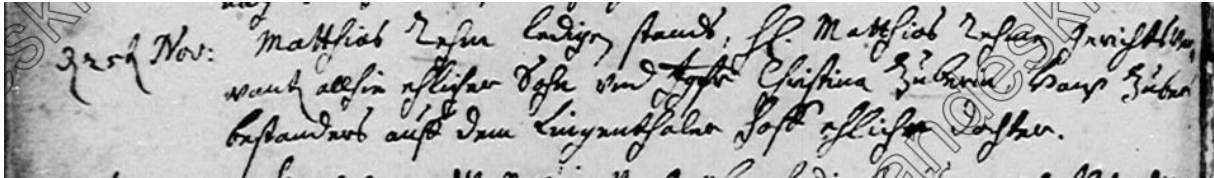 d. 25t Nov: Matthias Zehm ledigen stands, H. Matthias Zehm Gerichts Ver,
wants allhie ehlicher Sohn und Jgfr Christina Zuberin, Hans Zuber
beständers auff dem Lingenthaler Hoff ehliche dochter.